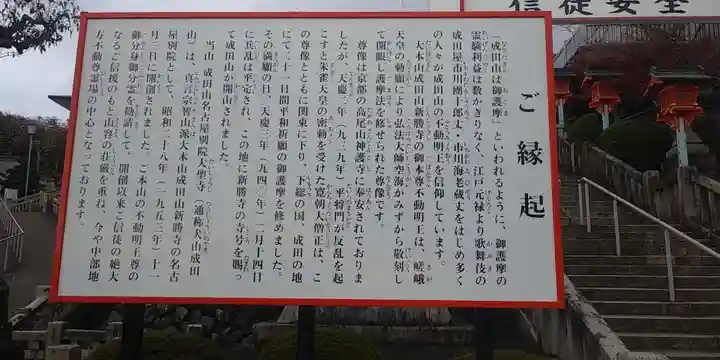 信徒安全
ご縁起
「成田山は御護摩」といわれるように、御護摩の
霊験利益は数かぎりなく、江戸元禄より歌舞伎の
成田屋市川團十郎丈・市川海老蔵丈をはじめ多く
の人々が成田山の不動明王を信仰しています。
大本山成田山新勝寺の御本尊不動明王は、嵯峨
天皇の勅願により弘法大師空海がみずから敬刻し
て開眼し護摩法を修せられた尊像です。
尊像は京都の高尾山神護寺に奉安されておりま
したが、天慶二年(九三九年)平将門が反乱を起
こすと朱雀天皇の密勅を受けた寛朝大僧正は、こ
の尊像とともに関東に下り、下総の国、成田の地
にて二十一日間平和祈願の御護摩を修めました。
その満願の日、天慶三年(九四〇年)二月十四日
に兵乱は平定され、この地に新勝寺の寺号を賜っ
て成田山が開山されました。
当山 成田山名古屋別院大聖寺(通称犬山成田
山)は、真言宗智山派大本山成田山新勝寺の名古
屋別院として、昭和二十八年(一九五三年)十一
月三日に開創されました。ご本山の不動明王尊の
御分身御分霊を勧請して、開創以来ご信徒の絶大
なるご信援のもと山容の荘厳を重ね、今や中部地
方不動尊霊場の中心となっております。